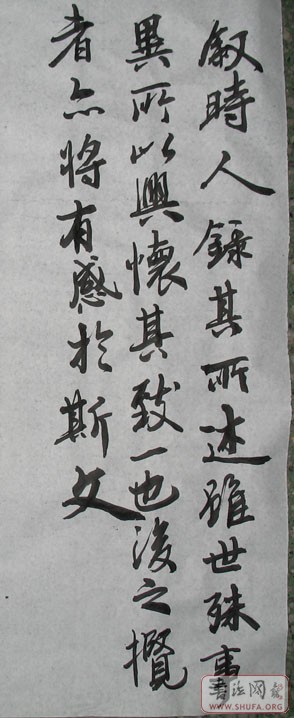 叙時人錄其所述雖世殊事
異所以興懷其致一也後之攬
者亦將有感於斯文
書法网
WWW.SHUFA.ORG